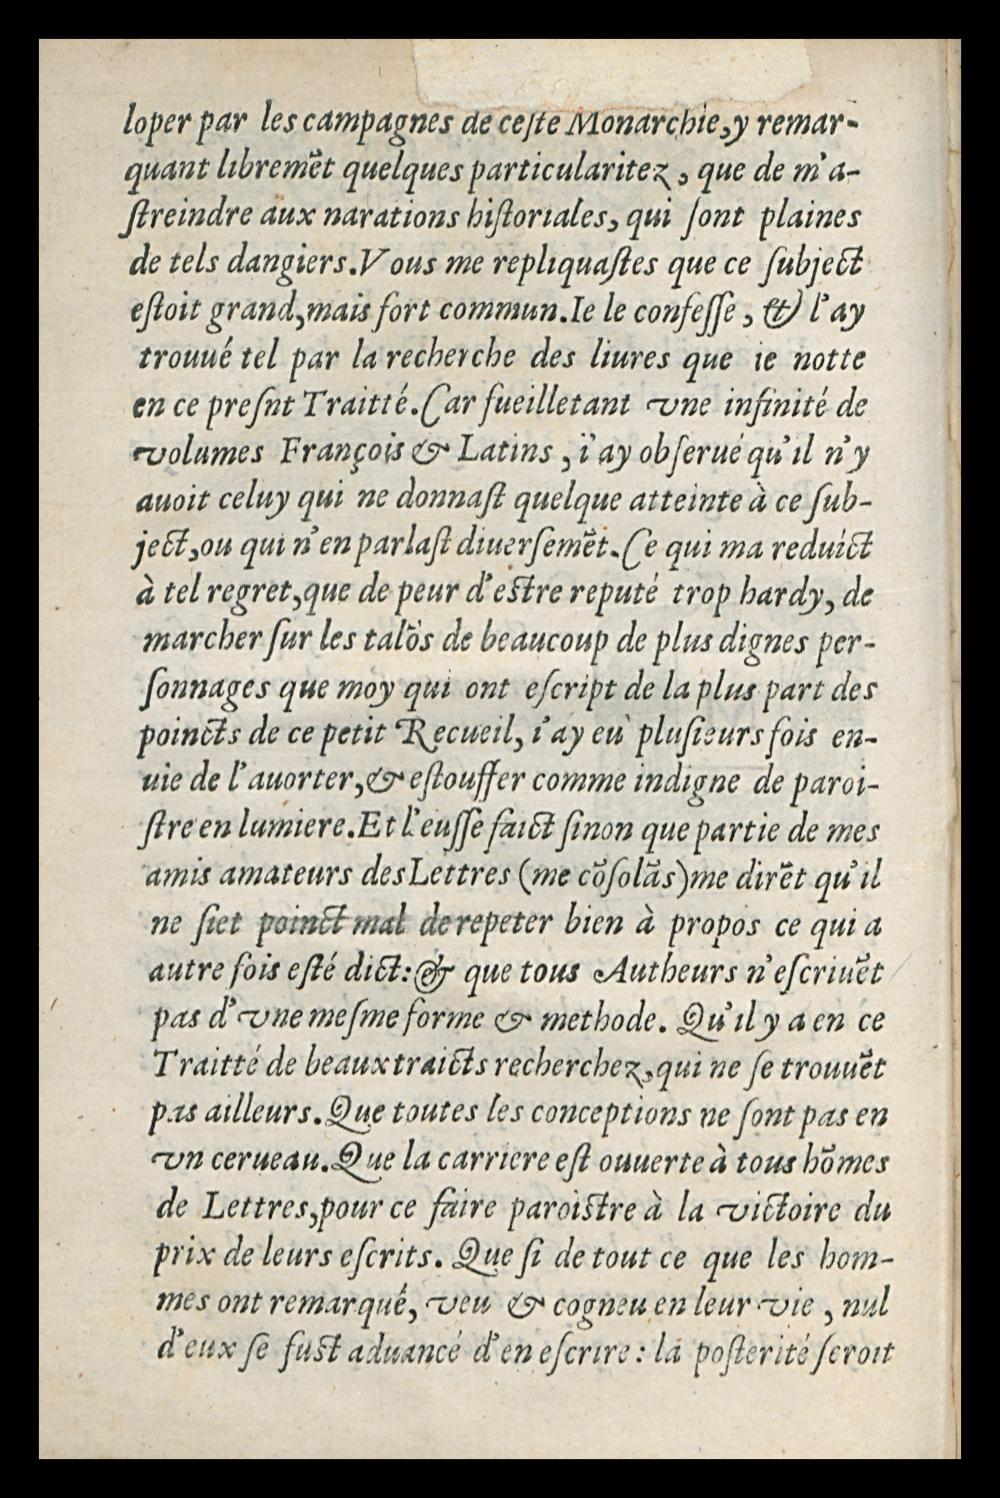 loper par les campagnes de ceſte Monarchie, y remar-
quant libremẽt quelques particularitez, que de m'a-
ſtreindre aux narations hiſtoriales, qui ſont plaines
de tels dangiers. Vous me repliquaſtes que ce ſubject
eſtoit grand, mais fort commun. Ie le confeſſe, & l'ay
trouué tel par la recherche des liures que ie notte
en ce preſnt Traitté. Car fueilletant vne infinité de
volumes François & Latins, i'ay obſerué qu'il n'y
auoit celuy qui ne donnaſt quelque atteinte à ce ſub-
ject, ou qui n'en parlaſt diuerſemẽt. Ce qui ma reduict
à tel regret, que de peur d'eſtre reputé trop hardy, de
marcher ſur les talõs de beaucoup de plus dignes per-
ſonnages que moy qui ont eſcript de la plus part des
poincts de ce petit Recueil, i'ay eu pluſieurs fois en-
uie de l'auorter, & eſtouffer comme indigne de paroi-
ſtre en lumiere. Et l'euſſe faict ſinon que partie de mes
amis amateurs des Lettres (me cõſolãs) me dirẽt qu'il
ne ſiet poinct mal de repeter bien à propos ce qui a
autre fois eſté dict: & que tous Autheurs n'eſcriuẽt
pas d'vne meſme forme & methode. Qu'il y a en ce
Traitté de beaux traicts recherchez, qui ne ſe trouuẽt
pas ailleurs. Que toutes les conceptions ne ſont pas en
vn cerueau. Que la carriere eſt ouuerte à tous hõmes
de Lettres, pour ce faire paroiſtre à la victoire du
prix de leurs eſcrits. Que ſi de tout ce que les hom-
mes ont remarqué, veu & cogneu en leur vie, nul
d'eux ſe fuſt aduancé d'en eſcrire: la poſterité ſeroit